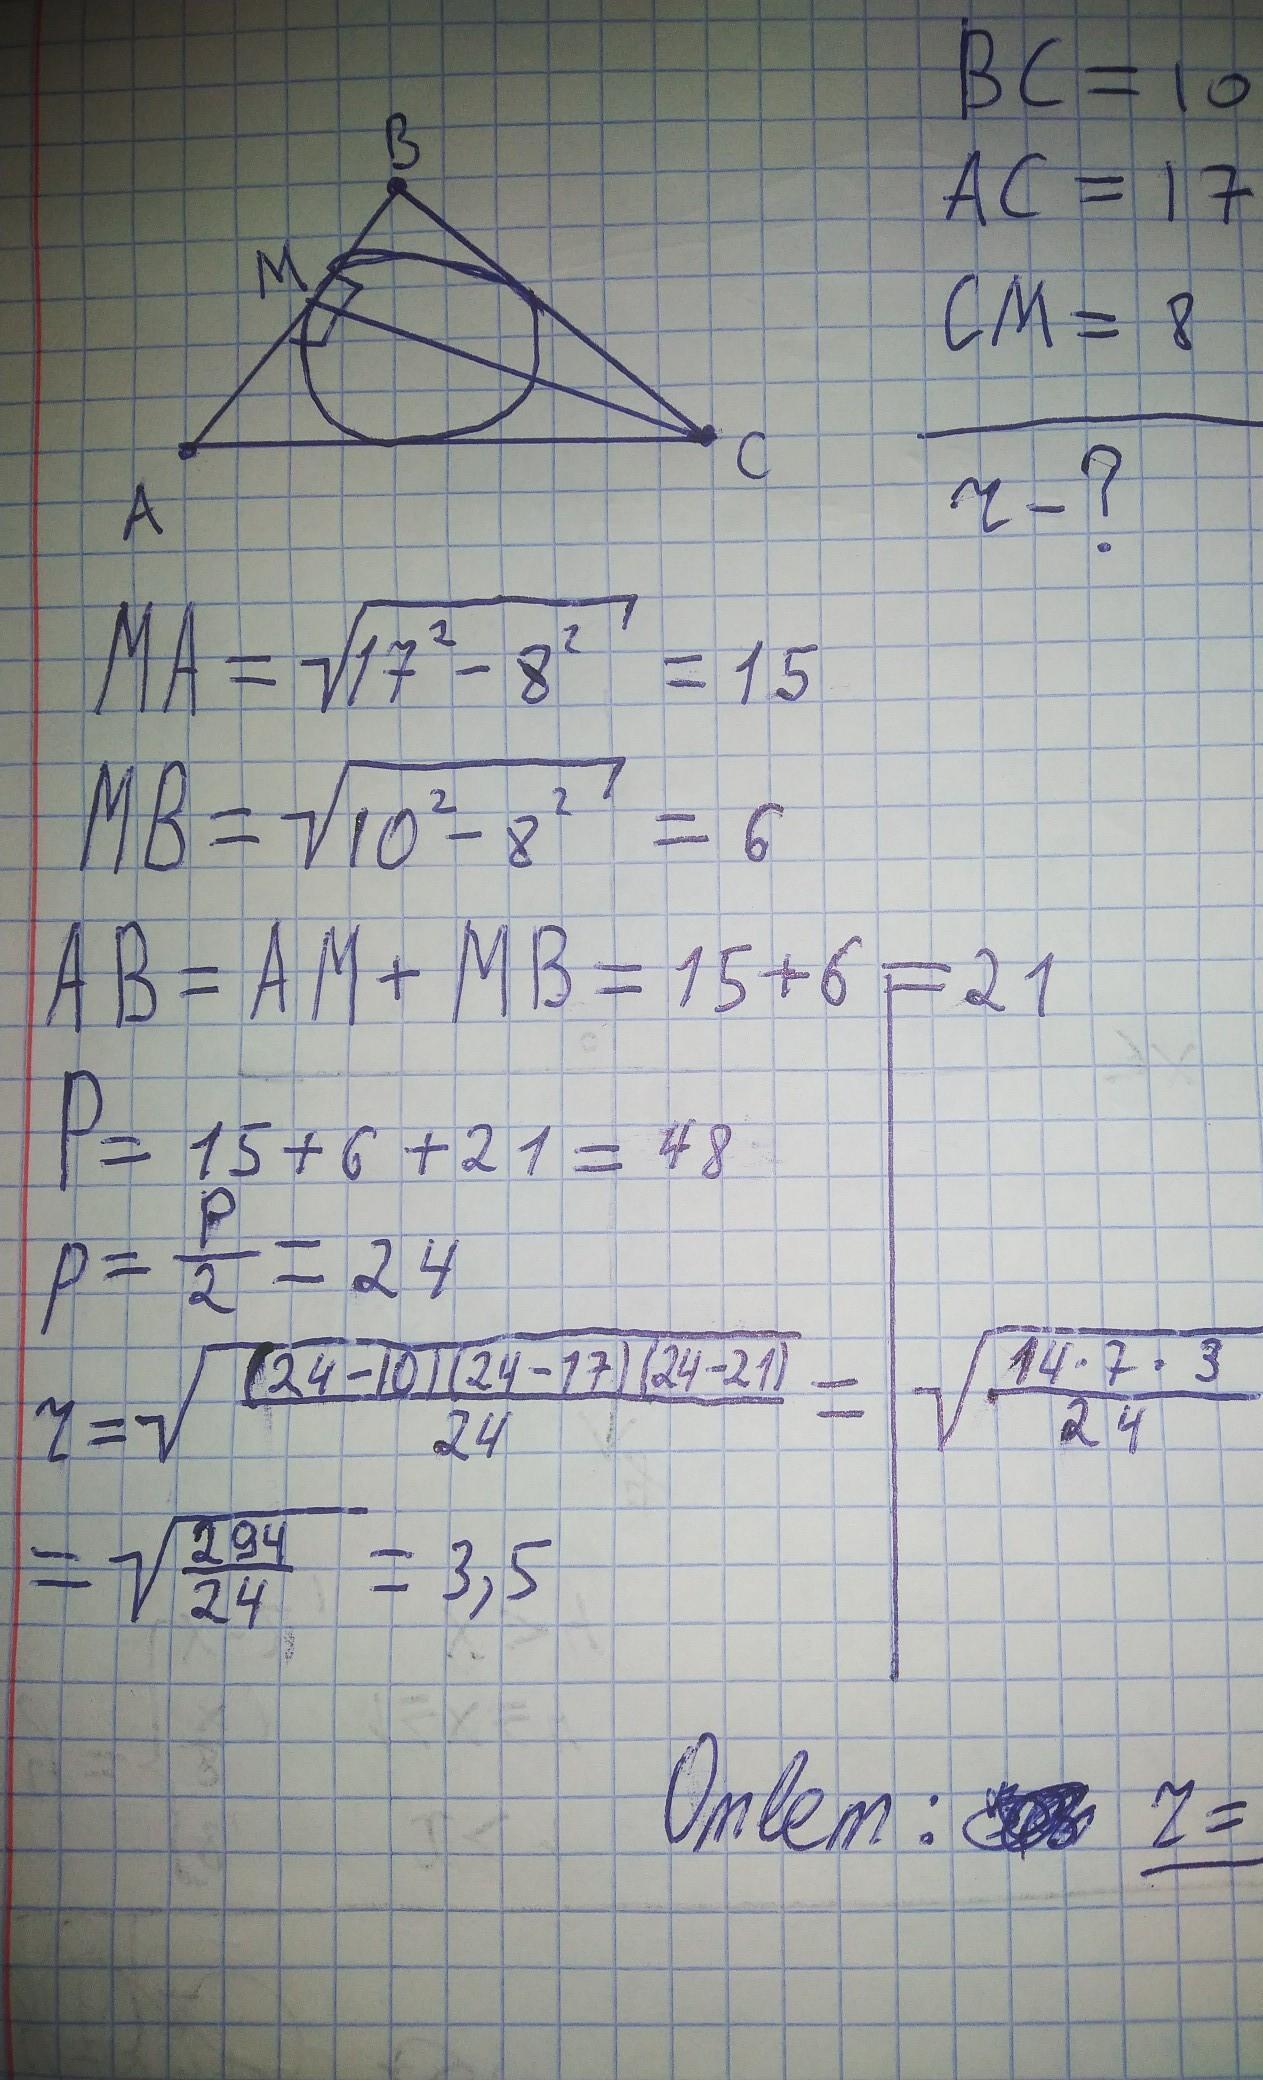 BC = 10
AC = 17
CM = 8
r - ?
B
M
A
C
MA = √(17² - 8²) = 15
MB = √(10² - 8²) = 6
AB = AM + MB = 15 + 6 = 21
P = 15 + 6 + 21 = 48
p = P/2 = 24
r = √((24-10)(24-17)(24-21)/24) = √(14·7·3/24)
= √(294/24) = 3,5
Ответ: r =